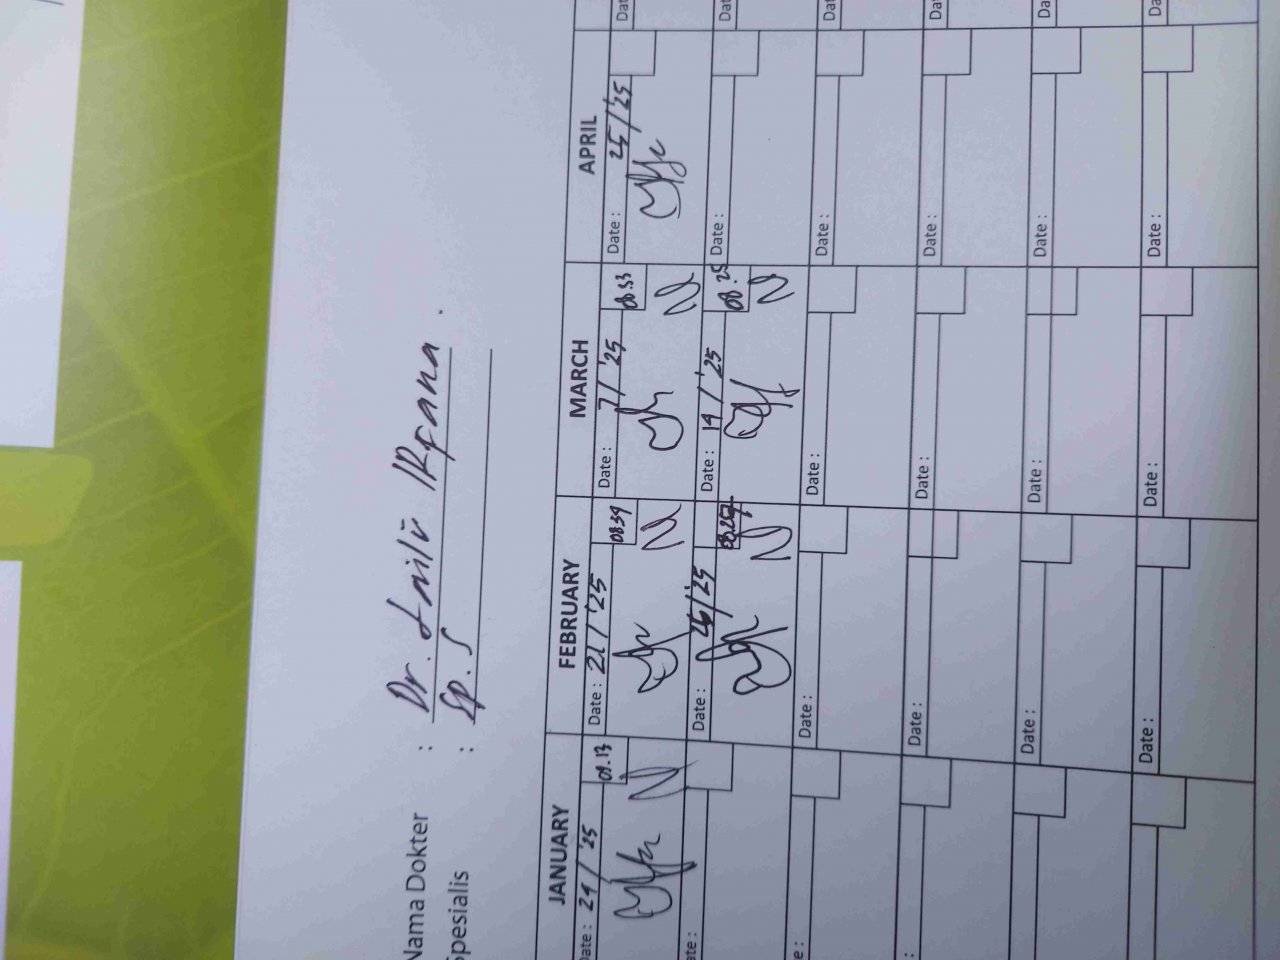 Nama Dokter : Dr. Laili IRfana.
Spesialis : Sp. S
JANUARY FEBRUARY MARCH APRIL
Date: 24 / '25 09.13 Date: 21 / '25 0839 Date: 7 / '25 08.33 Date: 25 / '25 Dat
N N N
Date: Date: 26/'25 Date: 14 / '25 08.25 Date: Dat
N N
Date: Date: Date: Date: Dat
Date: Date: Date: Date: Da
Date: Date: Date: Da
Date: Date: Date: Da